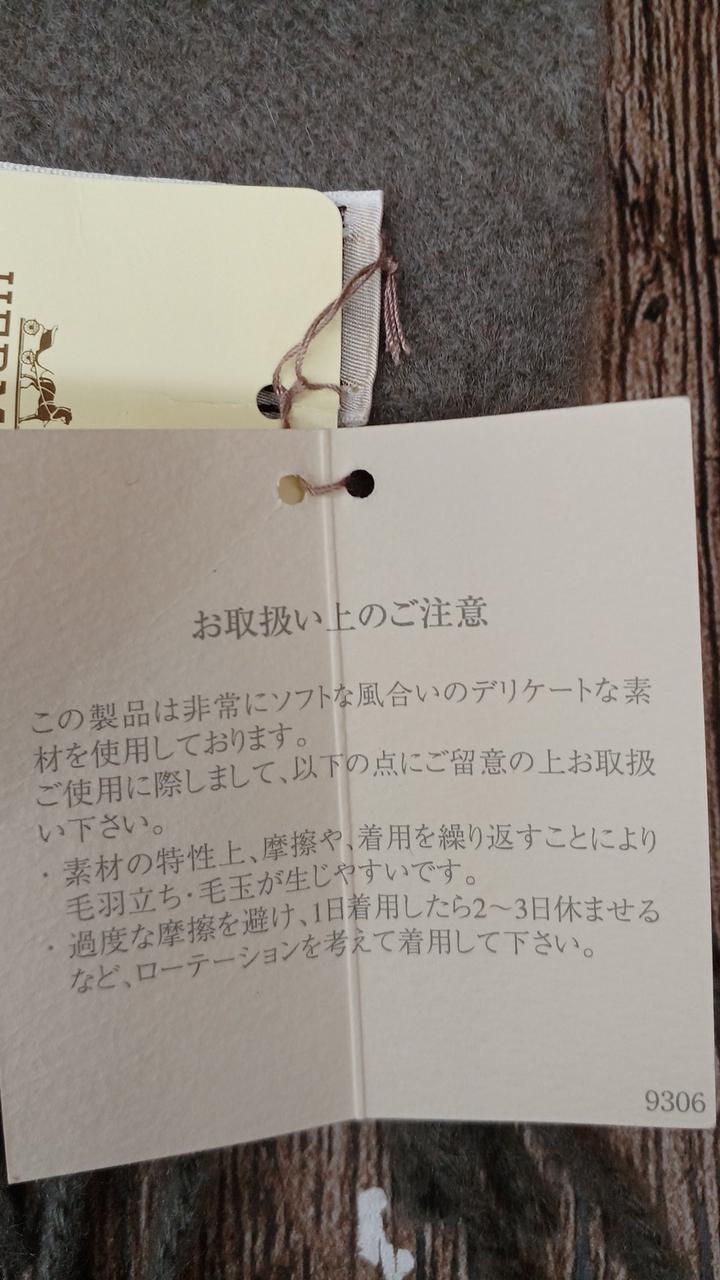 お取扱い上のご注意
この製品は非常にソフトな風合いのデリケートな素
材を使用しております。
ご使用に際しまして、以下の点にご留意の上お取扱
い下さい。
・素材の特性上、摩擦や、着用を繰り返すことにより
毛羽立ち・毛玉が生じやすいです。
・過度な摩擦を避け、1日着用したら2〜3日休ませる
など、ローテーションを考えて着用して下さい。
9306